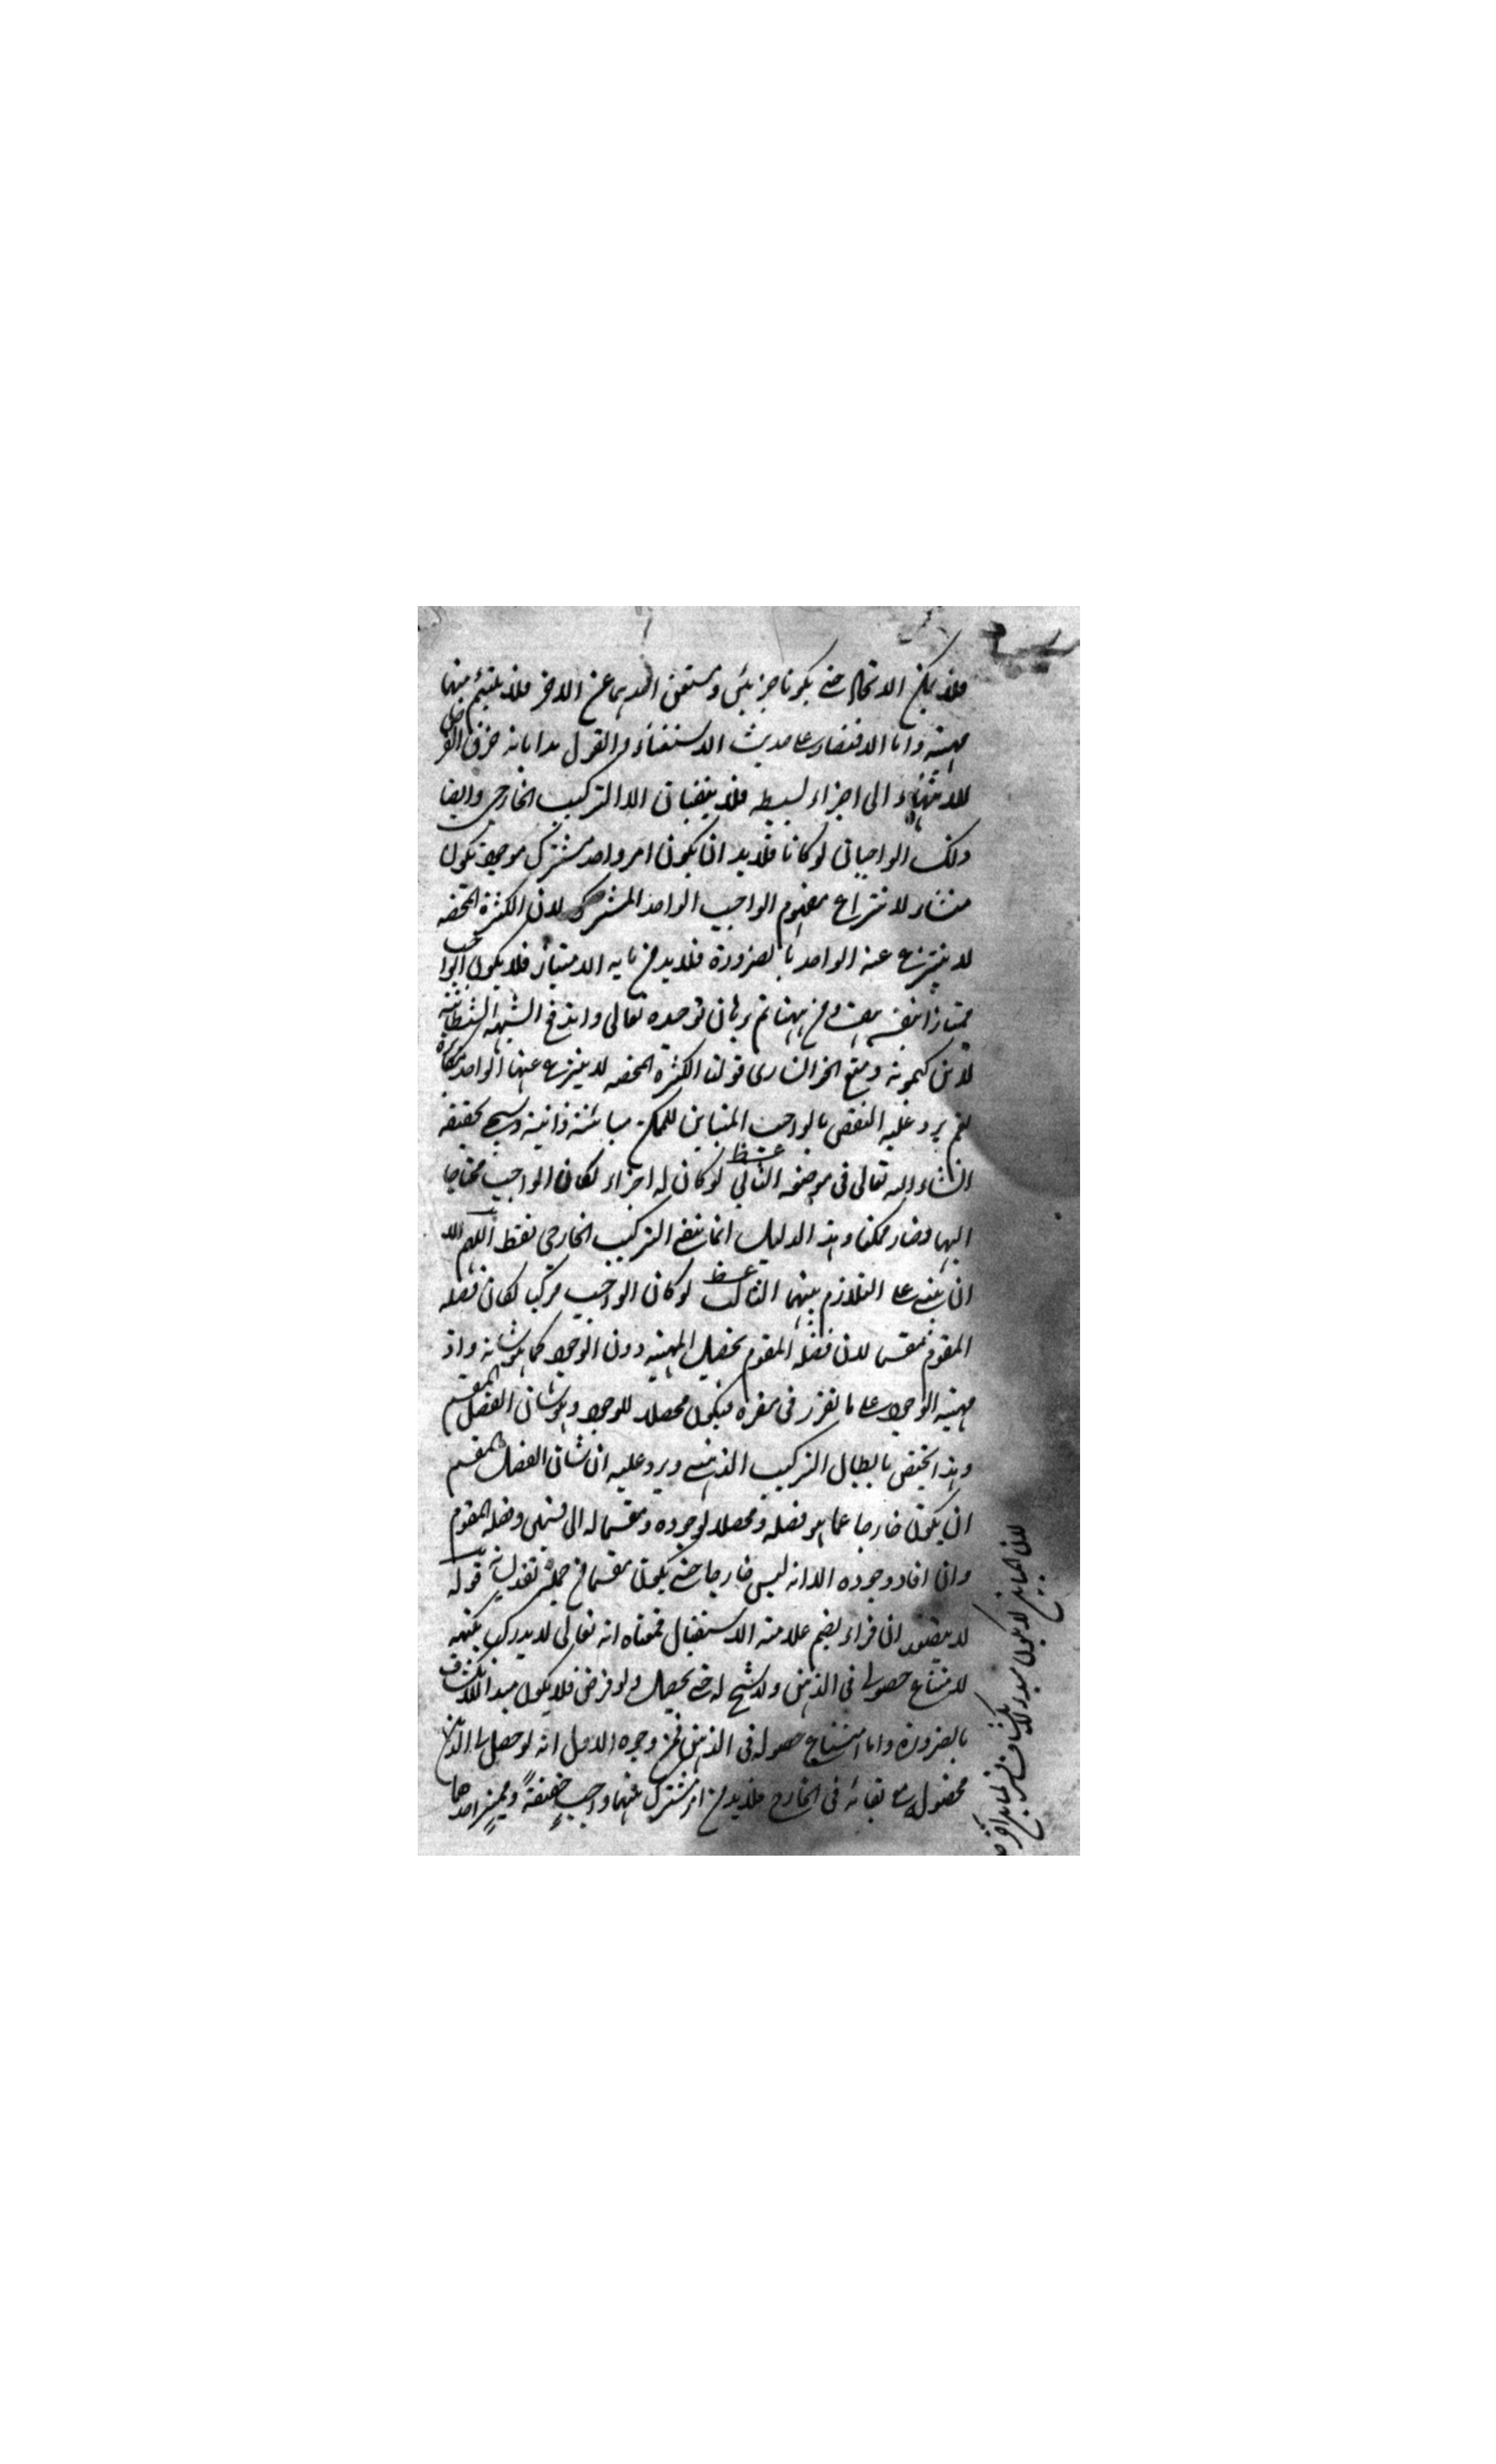 فلا يمكن الاتحاد حتى يكونا جزئين ويستغنى احدهما عن الاخر فلا يلتئم منهما
مهية واما الاقتصار على حديث الاستغناء والقول بدابانه خرق الفرض
للانتهاء الى اجزاء بسيطه فلا ينفيان الا التركيب الخارجى وايضا
ذلك الواجبان لو كانا فلابد ان يكون امر واحد مشترك موجود يكون
منشاء لانتزاع مفهوم الواجب الواحد المشترك لان الكثرة المحضه
لا ينتزع عنه الواحد بالضرورة فلابد من ما به الامتياز فلا يكون الواجب
ممتازا بنفسه هف ومن ههنا تم برهان توحده تعالى واندفع الشبهه الشيطانية
لابن كمونه ومنع الخوانسارى قولنا الكثرة المحضه لا ينتزع عنها الواحد مكابرة
نعم يرد عليه النقض بالواجب المتباين للممكن مباينة ذاتية وسيجئ تحقيقه
انشاء الله تعالى فى موضعه الثانى لو كان له اجزاء لكان الواجب محتاجا
اليها وصار ممكنا وهذا الدليل انما ينفى التركيب الخارجى فقط اللهم الا
ان يبنى على التلازم بينهما الثالث لو كان الواجب مركبا لكان فصله
المقوم مقسما لان فصله المقوم يحصل المهية دون الوجود كما هو شانه واذ
مهية الوجود على ما تقرر فى مقره فيكون محصلا للوجود وهو شان الفصل المقسم
وهذا يختص بابطال التركيب الذهنى ويرد عليه ان شان الفصل المقسم
ان يكون خارجا عما هو فصله ومحصلا لوجوده ومقسما له الى قسمين وفصله المقوم
وان افاد وجوده الا انه ليس خارجا حتى يكون مقسما فى جملته قوله
لا يتصور ان قراء بضم علامة الاستقبال فمعناه انه تعالى لا يدرك بكنهه
لامتناع حصوله فى الذهن ولا شبح له حتى يحصل ولو فرض فلا يكون مبدا للانكشاف
بالضرورة واما امتناع حصوله فى الذهن فمن وجوه الاول انه لو حصل فى الذهن
فحصوله مع بقائه فى الخارج فلابد من امر مشترك بينهما واجب حقيقة ومميز احدهما
لان المباين لا يكون مبدء لانكشاف المباين الاخر